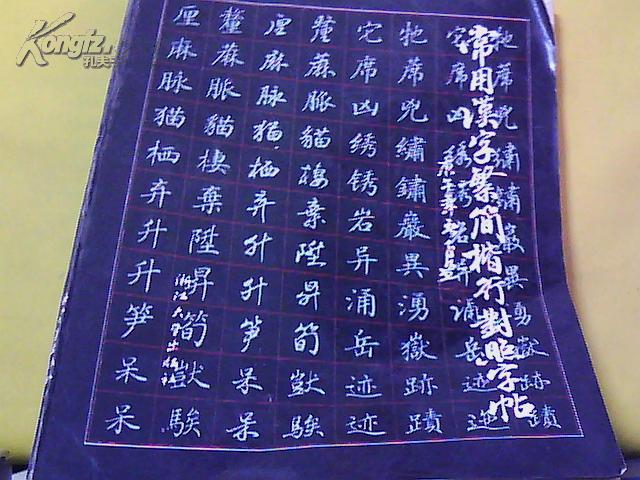 常用漢字繁简楷行對照字帖
牠蓆兇繡鏽巖異湧嶽跡蹟
它席凶绣锈岩异涌岳迹迹
牠蓆兇繡鏽巖異湧嶽跡蹟
它席凶绣锈岩异涌岳迹迹
釐蔴脈貓棲棄陞昇筍獃騃
厘麻脉猫栖弃升升笋呆呆
釐蔴脈貓棲棄陞昇筍獃騃
厘麻脉猫栖弃升升笋呆呆
浙江大学出版社
Kongfz.com